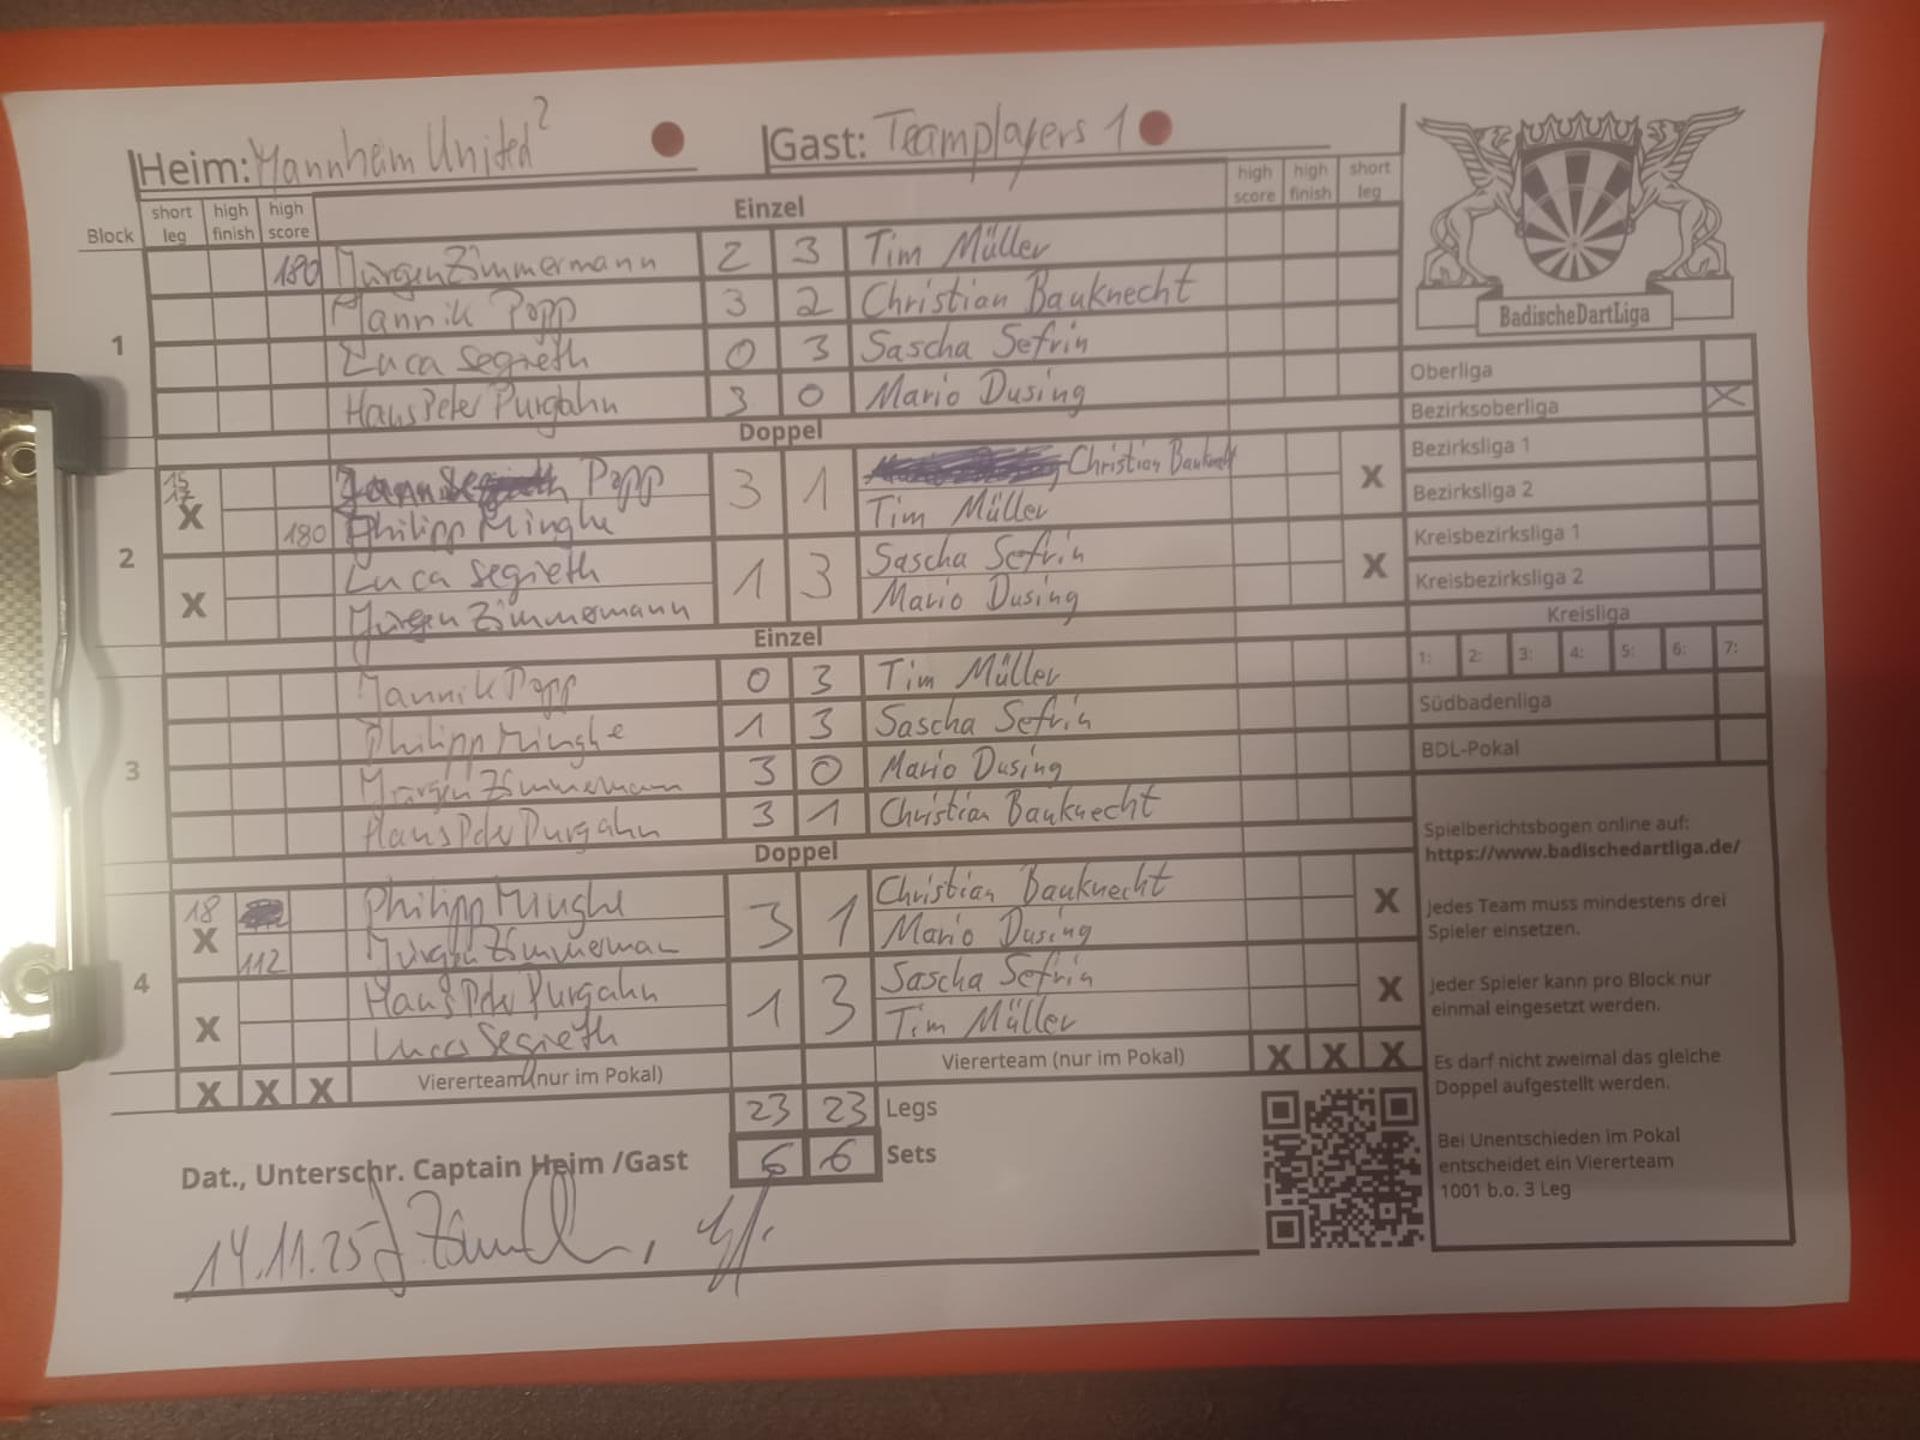 Heim: Mannheim United 2
Gast: Teamplayers 1
Block short leg high finish high score Einzel high score high finish short leg
1
180 Jürgen Zimmermann 2 3 Tim Müller
Jannik Popp 3 2 Christian Bauknecht
Luca Segieth 0 3 Sascha Sefrin
Hans Peter Purgahn 3 0 Mario Dusing
Doppel
2
15 17 X Popp 3 1 Christian Bauknecht X
180 Philipp Minghe Tim Müller
X Luca Segieth 1 3 Sascha Sefrin X
Jürgen Zimmermann Mario Dusing
Einzel
3
Jannik Popp 0 3 Tim Müller
Philipp Minghe 1 3 Sascha Sefrin
Jürgen Zimmermann 3 0 Mario Dusing
Hans Peter Purgahn 3 1 Christian Bauknecht
Doppel
4
18 X Philipp Minghe 3 1 Christian Bauknecht X
112 Jürgen Zimmerman Mario Dusing
X Hans Peter Purgahn 1 3 Sascha Sefrin X
Luca Segieth Tim Müller
X X X Viererteam (nur im Pokal) Viererteam (nur im Pokal) X X X
23 23 Legs
6 6 Sets
Dat., Unterschr. Captain Heim /Gast
14.11.25
BadischeDartLiga
Oberliga
Bezirksoberliga X
Bezirksliga 1
Bezirksliga 2
Kreisbezirksliga 1
Kreisbezirksliga 2
Kreisliga
1: 2: 3: 4: 5: 6: 7:
Südbadenliga
BDL-Pokal
Spielberichtsbogen online auf:
https://www.badischedartliga.de/
Jedes Team muss mindestens drei
Spieler einsetzen.
Jeder Spieler kann pro Block nur
einmal eingesetzt werden.
Es darf nicht zweimal das gleiche
Doppel aufgestellt werden.
Bei Unentschieden im Pokal
entscheidet ein Viererteam
1001 b.o. 3 Leg